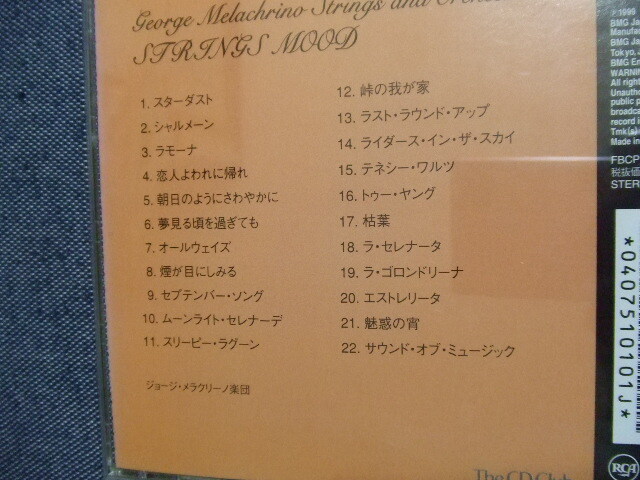 George Melachrino Strings and
STRINGS MOOD
1. スターダスト
2. シャルメーン
3. ラモーナ
4. 恋人よわれに帰れ
5. 朝日のようにさわやかに
6. 夢見る頃を過ぎても
7. オールウェイズ
8. 煙が目にしみる
9. セプテンバー・ソング
10. ムーンライト・セレナーデ
11. スリーピー・ラグーン
12. 峠の我が家
13. ラスト・ラウンド・アップ
14. ライダース・イン・ザ・スカイ
15. テネシー・ワルツ
16. トゥー・ヤング
17. 枯葉
18. ラ・セレナータ
19. ラ・ゴロンドリーナ
20. エストレリータ
21. 魅惑の宵
22. サウンド・オブ・ミュージック
ジョージ・メラクリーノ楽団
The CD Club
℗ 1999
BMG Ja
Manufac
BMG Ja
Tokyo, J
BMG En
WARNIN
All right
Unautho
public p
broadcas
record i
Tmk(s)
Made in
FBCP
税抜価
STER
*0407510101J*
RCA